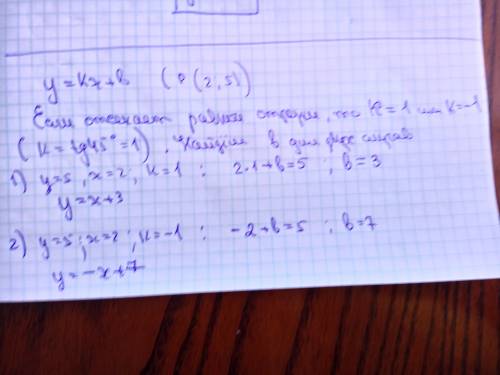 y = kx + b (P(2,5))
Если отсекает равные отрезки, то K = 1 или K = -1
(K = tg45° = 1). Найдём b для двух случаев
1) y=5, x=2, K=1 : 2·1+b=5 ; b=3
y = x+3
2) y=5; x=2; K=-1 : -2+b=5 ; b=7
y = -x+7